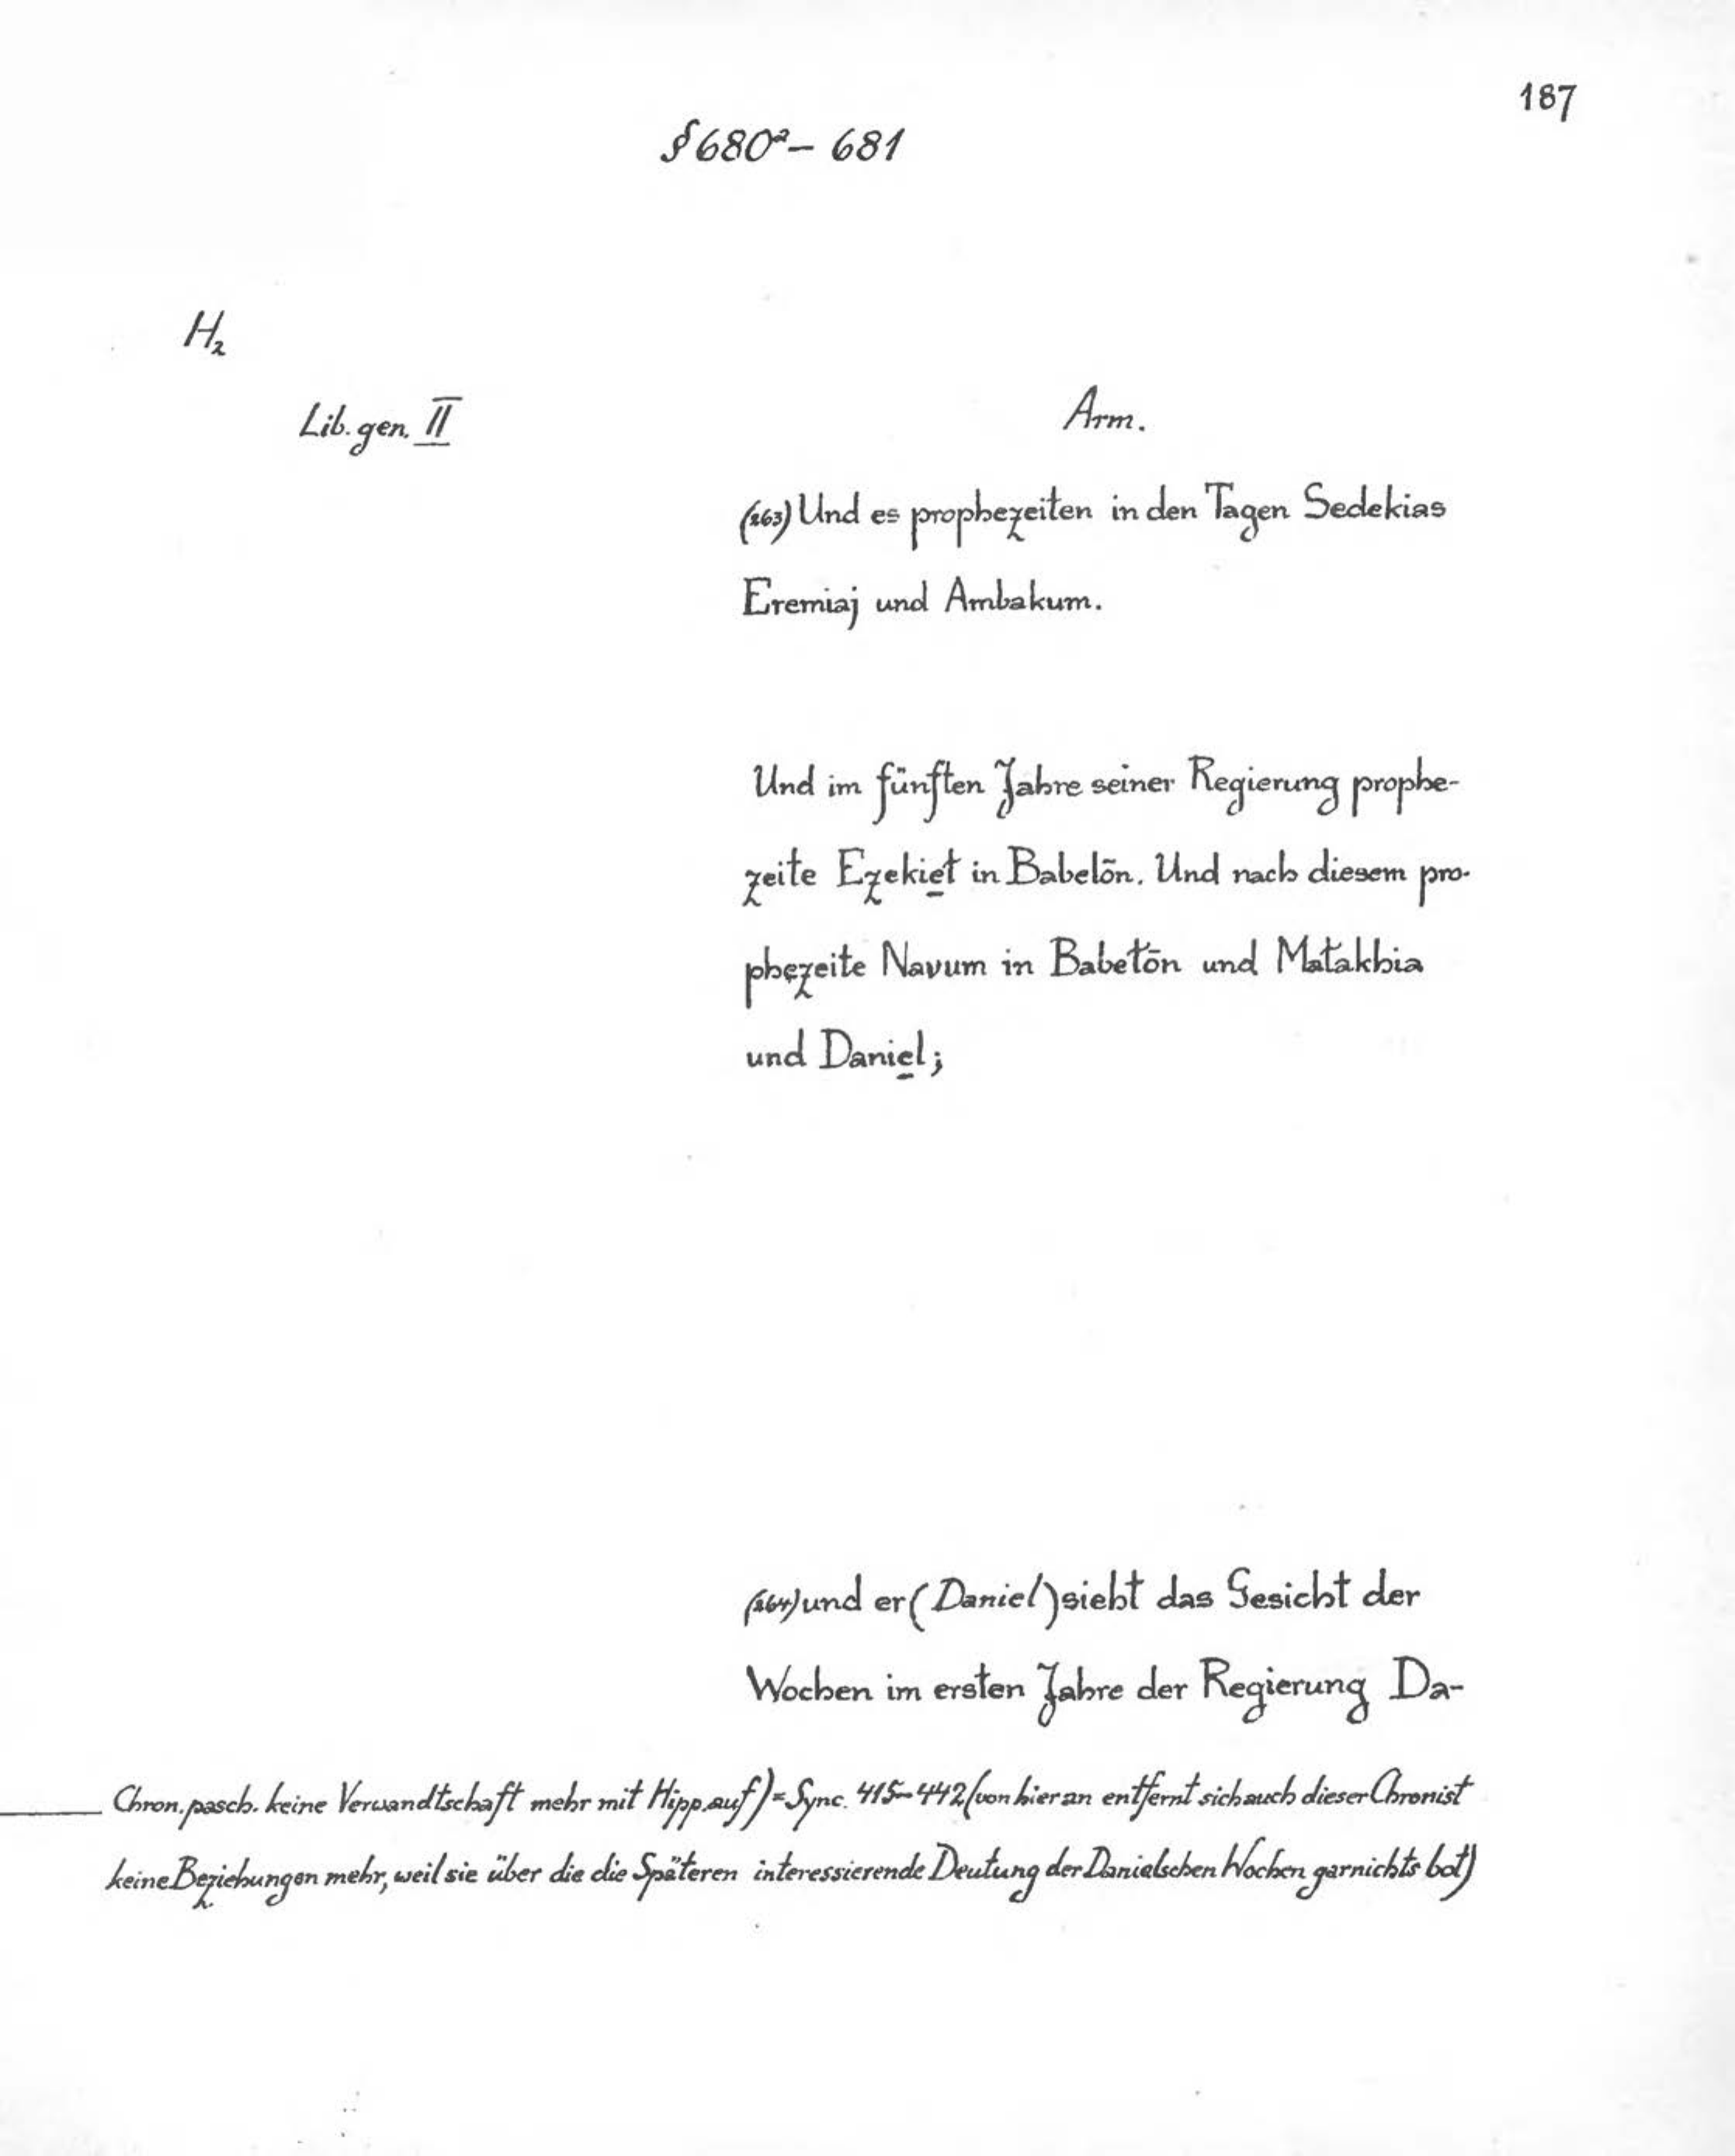 187
§ 680ᵃ – 681
H₂
Lib. gen. II
Arm.
(263) Und es prophezeiten in den Tagen Sedekias
Eremiaj und Ambakum.
Und im fünften Jahre seiner Regierung prophe-
zeite Ezekieł in Babelōn. Und nach diesem pro-
phezeite Navum in Babełōn und Matakhia
und Daniel;
(264) und er (Daniel) sieht das Gesicht der
Wochen im ersten Jahre der Regierung Da-
Chron. pasch. keine Verwandtschaft mehr mit Hipp. auf) = Sync. 415–442 (von hier an entfernt sich auch dieser Chronist
keine Beziehungen mehr, weil sie über die die Späteren interessierende Deutung der Danielschen Wochen garnichts bot)